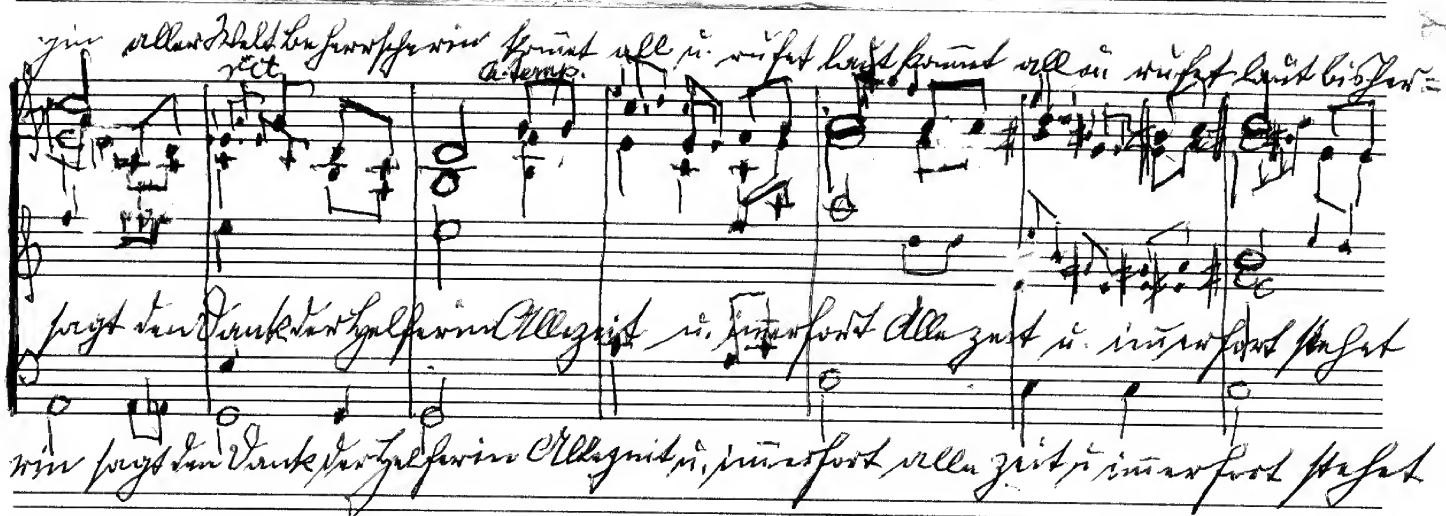 aller Welt Beherrscherin kom̄et all u. rufet laut kom̄et all u. rufet laut bisher=
rit. a. temp.
sagt den Dank der Helferin Allezeit u. im̄erfort Alle zeit u. im̄erfort stehet
rin sagt den Dank der Helferin Allezeit u. im̄erfort alle zeit u im̄erfort stehet